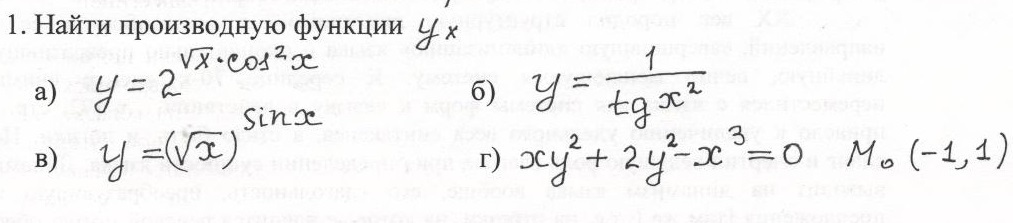 1. Найти производную функции y'ₓ
а) y = 2^(√x · cos² x) б) y = 1/(tg x²)
в) y = (√x)^(sin x) г) xy² + 2y² - x³ = 0 M₀ (-1, 1)